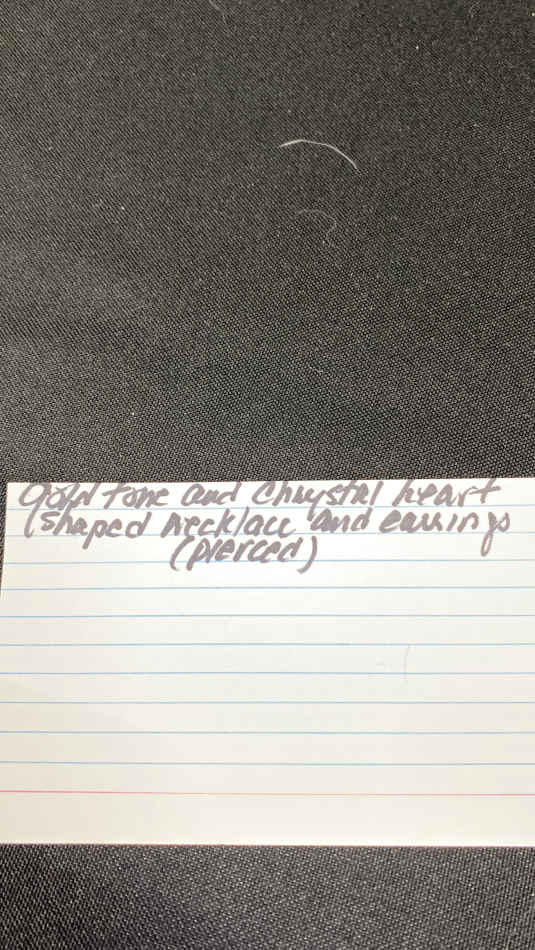 gold tone and Chrystal heart
shaped necklace and earrings
(pierced)